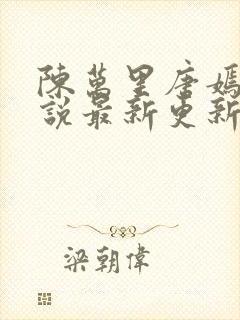 陳萬里唐嫣
說最新更新
梁朝偉